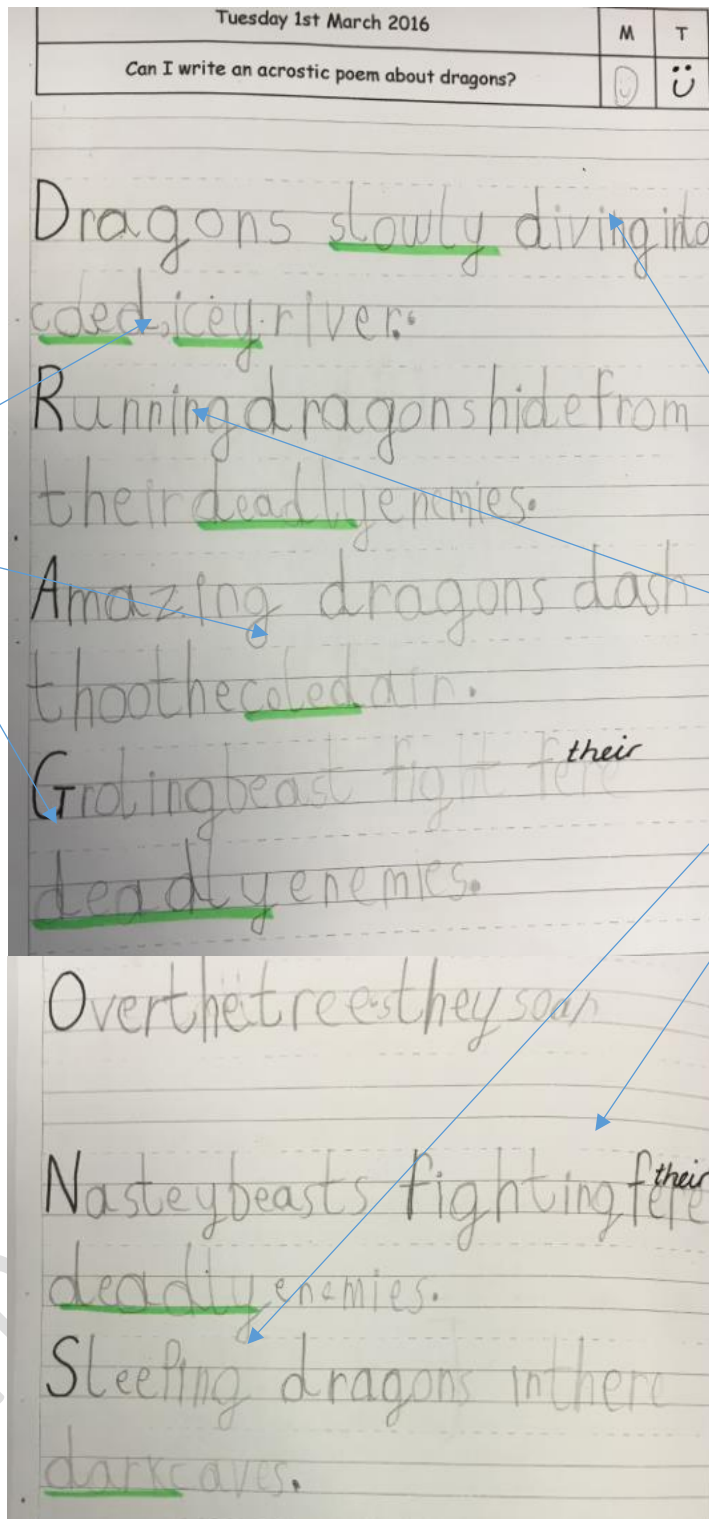 Tuesday 1st March 2016
M T
Can I write an acrostic poem about dragons?
Dragons slowly diving into
coled, icey river.
Running dragons hide from
their deadly enemies.
Amazing dragons dash
thoo the coled air.
Groling beast fight fere their
deadly enemies.
Over the trees they soar
Nastey beasts fighting fere their
deadly enemies.
Sleeping dragons in there
dark caves.